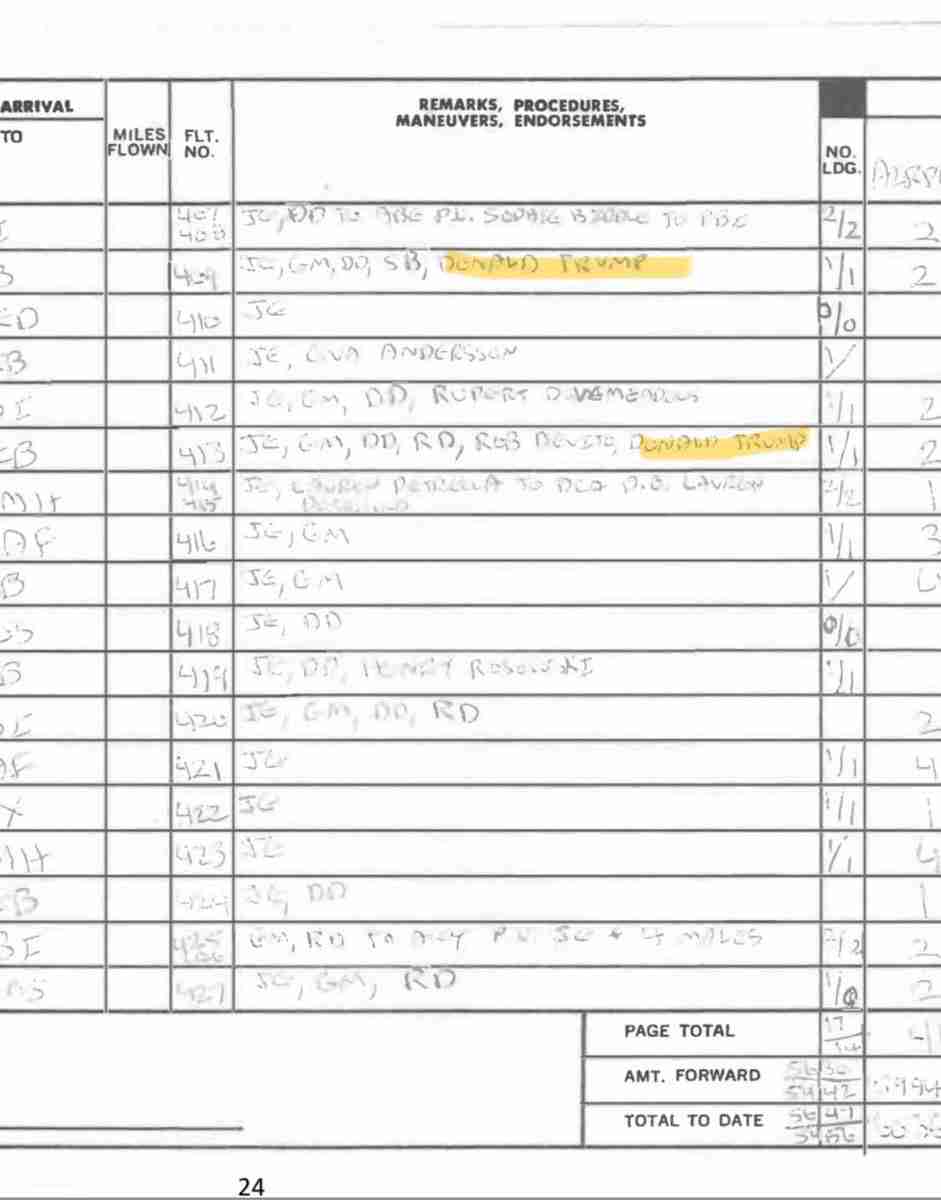 ARRIVAL
REMARKS, PROCEDURES,
MANEUVERS, ENDORSEMENTS
TO
MILES
FLOWN
FLT.
NO.
NO.
LDG.
407 JE, DD TO ABE P.U. SOPHIE BIDDLE TO PBI 2/2 2
408
B 409 JE, GM, DD, SB, DONALD TRUMP 1/1 2
ED 410 JE 0/0
B 411 JE, EVA ANDERSSON 1/
412 JE, GM, DD, RUPERT 1/1 2
EB 413 JE, GM, DD, RD, ROB DEVITO, DONALD TRUMP 1/1 2
414 JE, LAUREN PETRELLA TO D.O. LAUREN 2/2 1
415
416 JE, GM 1/1 3
B 417 JE, GM 1/
418 JE, DD 0/0
B 419 JE, DD, HENRY 1/1
420 JE, GM, DD, RD 2
421 JE 1/1 4
X 422 JE 1/1 1
423 JE 1/1 4
EB 424 JE, DD 1
BI 425 GM, RD TO ACY P.U. JE + 4 MALES 2/2 2
427 JE, GM, RD 1/0 2
PAGE TOTAL 17
AMT. FORWARD 5630
5442
TOTAL TO DATE 5647
5456
24